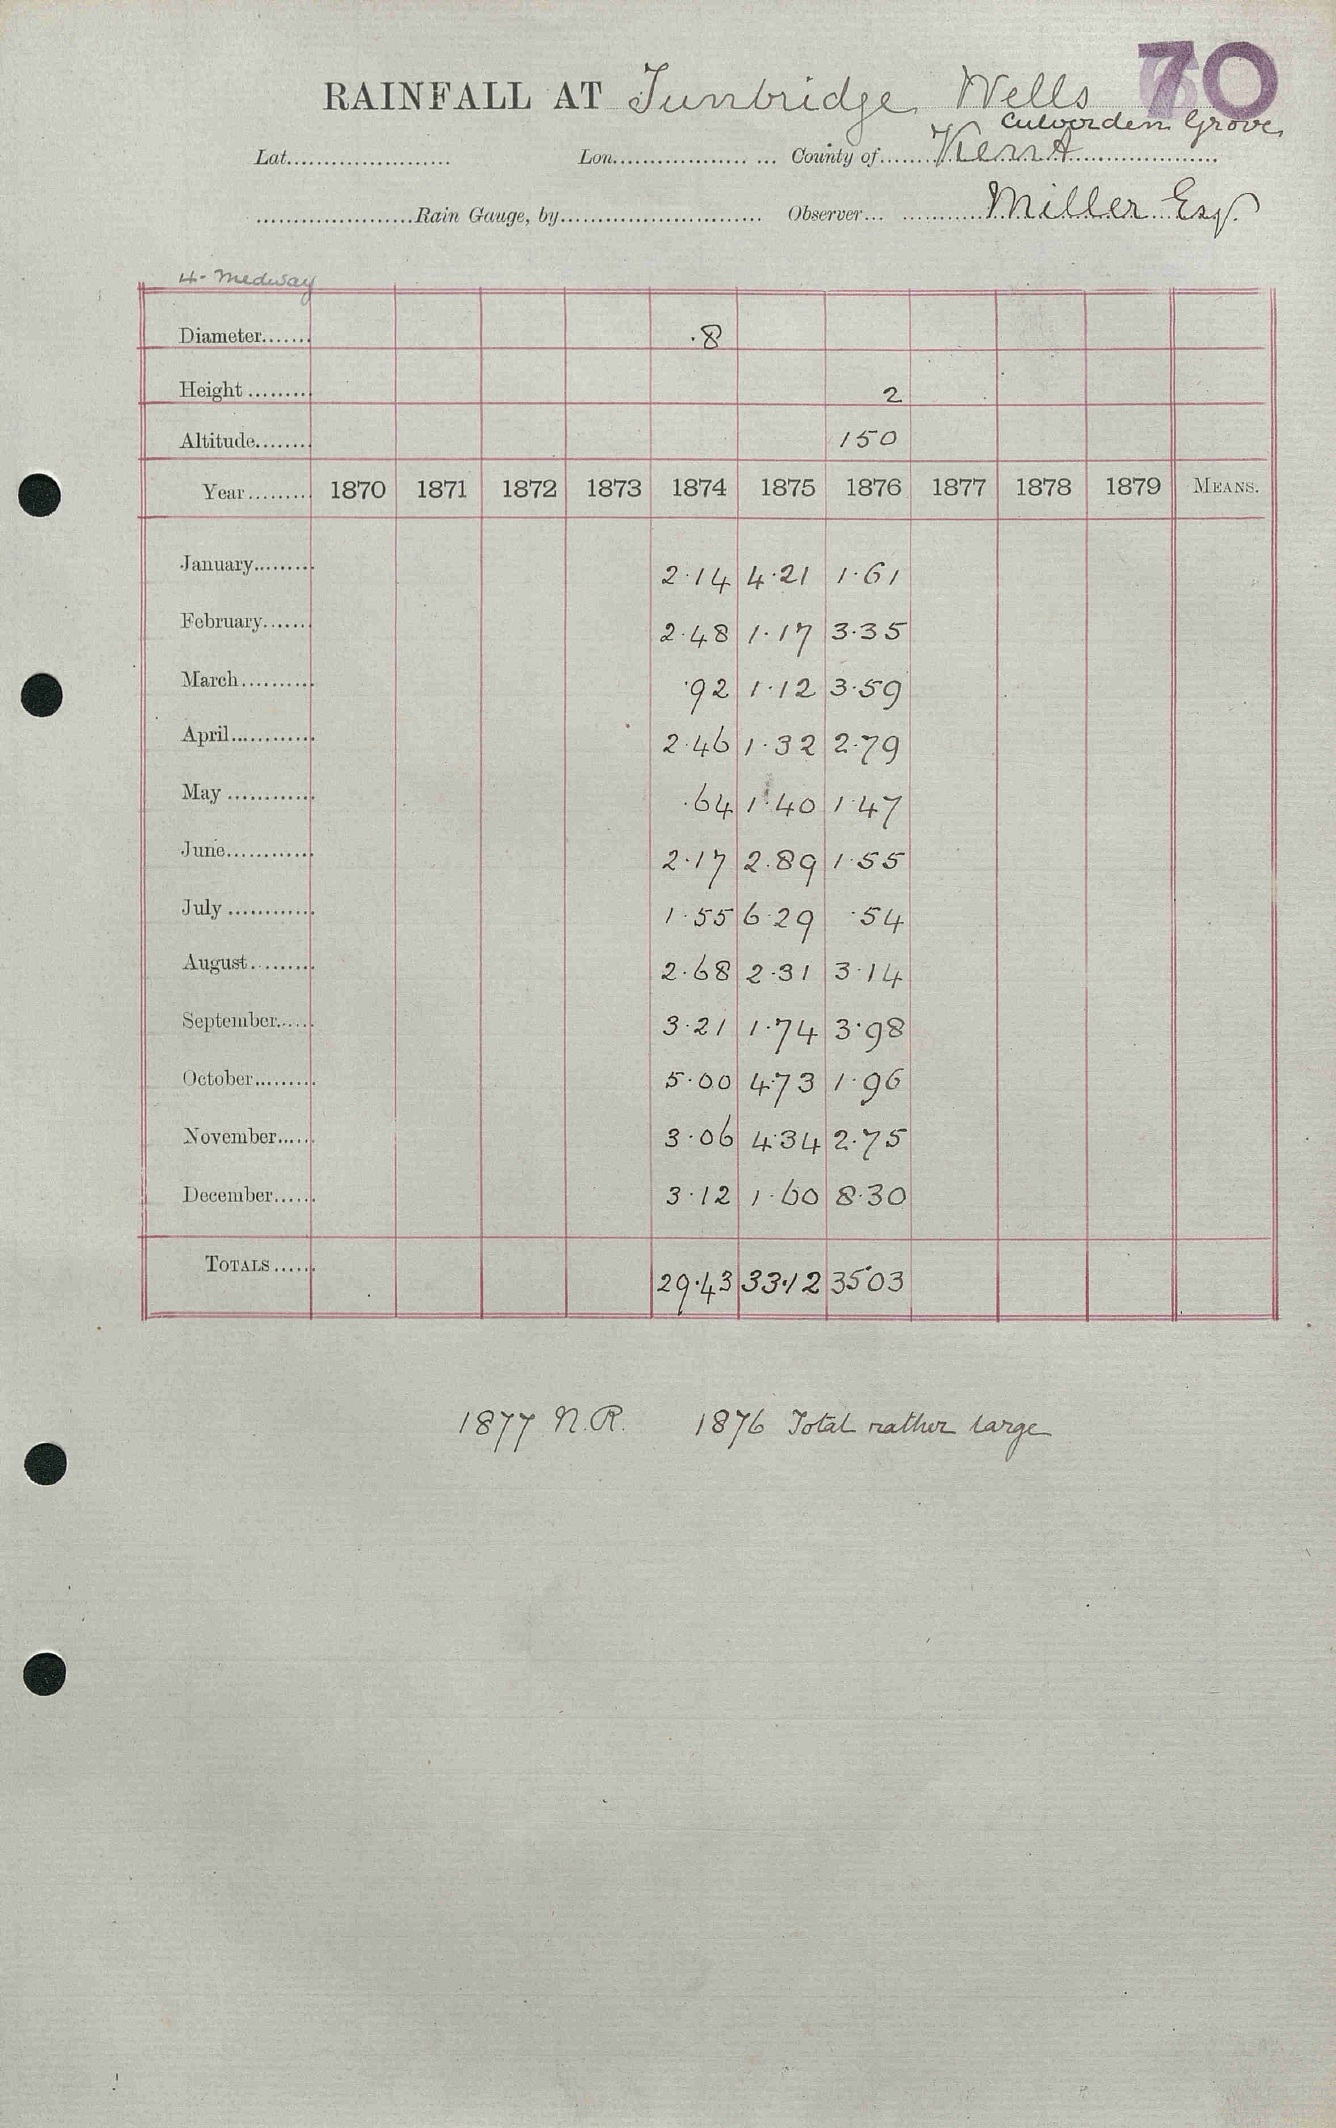 70
RAINFALL AT Tunbridge Wells
Culverden Grove
Lat...................... Lon.................. ... County of........Kent....................
......................Rain Gauge, by............................ Observer... ............Miller Esq.
4 - Medway
Diameter....... .8
Height ......... 2
Altitude........ 150
Year......... 1870 1871 1872 1873 1874 1875 1876 1877 1878 1879 MEANS.
January......... 2.14 4.21 1.61
February....... 2.48 1.17 3.35
March.......... .92 1.12 3.59
April............ 2.46 1.32 2.79
May ............ .64 1.40 1.47
June............ 2.17 2.89 1.55
July ............ 1.55 6.29 .54
August.......... 2.68 2.31 3.14
September...... 3.21 1.74 3.98
October......... 5.00 4.73 1.96
November...... 3.06 4.34 2.75
December...... 3.12 1.60 8.30
TOTALS...... 29.43 33.12 35.03
1877 N.R. 1876 Total rather large